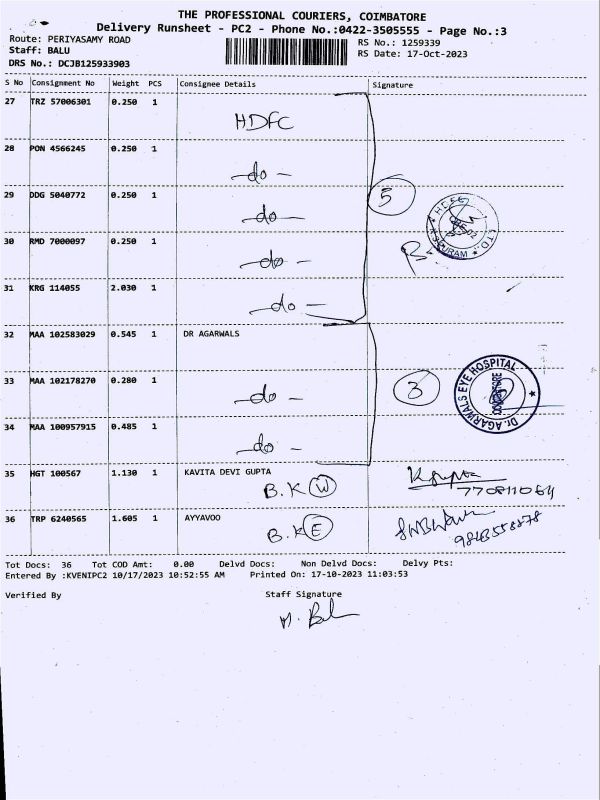 THE PROFESSIONAL COURIERS, COIMBATORE
Delivery Runsheet - PC2 - Phone No.:0422-3505555 - Page No.:3
Route: PERIYASAMY ROAD
RS No.: 1259339
Staff: BALU
RS Date: 17-Oct-2023
DRS No.: DCJB125933903
S No Consignment No Weight PCS Consignee Details Signature
27 TRZ 57006301 0.250 1
HDFC
28 PON 4566245 0.250 1
-do-
29 DDG 5040772 0.250 1
-do-
5
30 RMD 7000097 0.250 1
-do-
31 KRG 114055 2.030 1
-do-
32 MAA 102583029 0.545 1 DR AGARWALS
33 MAA 102178270 0.280 1
-do-
3
Dr. AGARWALS EYE HOSPITAL
34 MAA 100957915 0.485 1
-do-
35 HGT 100567 1.130 1 KAVITA DEVI GUPTA
B.K W
36 TRP 6240565 1.605 1 AYYAVOO
B.K E
Tot Docs: 36 Tot COD Amt: 0.00 Delvd Docs: Non Delvd Docs: Delvy Pts:
Entered By :KVENIPC2 10/17/2023 10:52:55 AM Printed On: 17-10-2023 11:03:53
Verified By Staff Signature